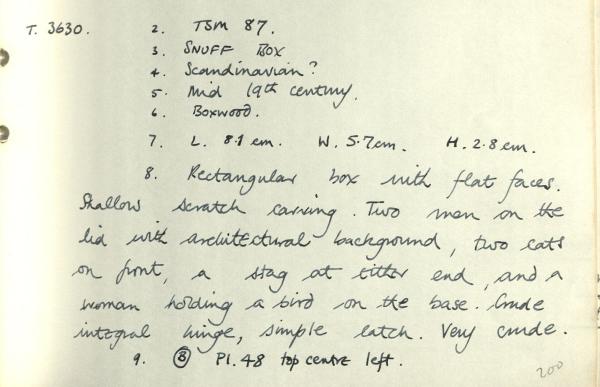 T. 3630. 2. TSM 87.
3. SNUFF BOX
4. Scandinavian?
5. Mid 19th century.
6. Boxwood.
7. L. 8.1 cm. W. 5.7cm. H. 2.8 cm.
8. Rectangular box with flat faces.
Shallow scratch carving. Two men on the
lid with architectural background, two cats
on front, a stag at either end, and a
woman holding a bird on the base. Crude
integral hinge, simple catch. Very crude.
9. Ⓑ Pl. 48 top centre left.
200